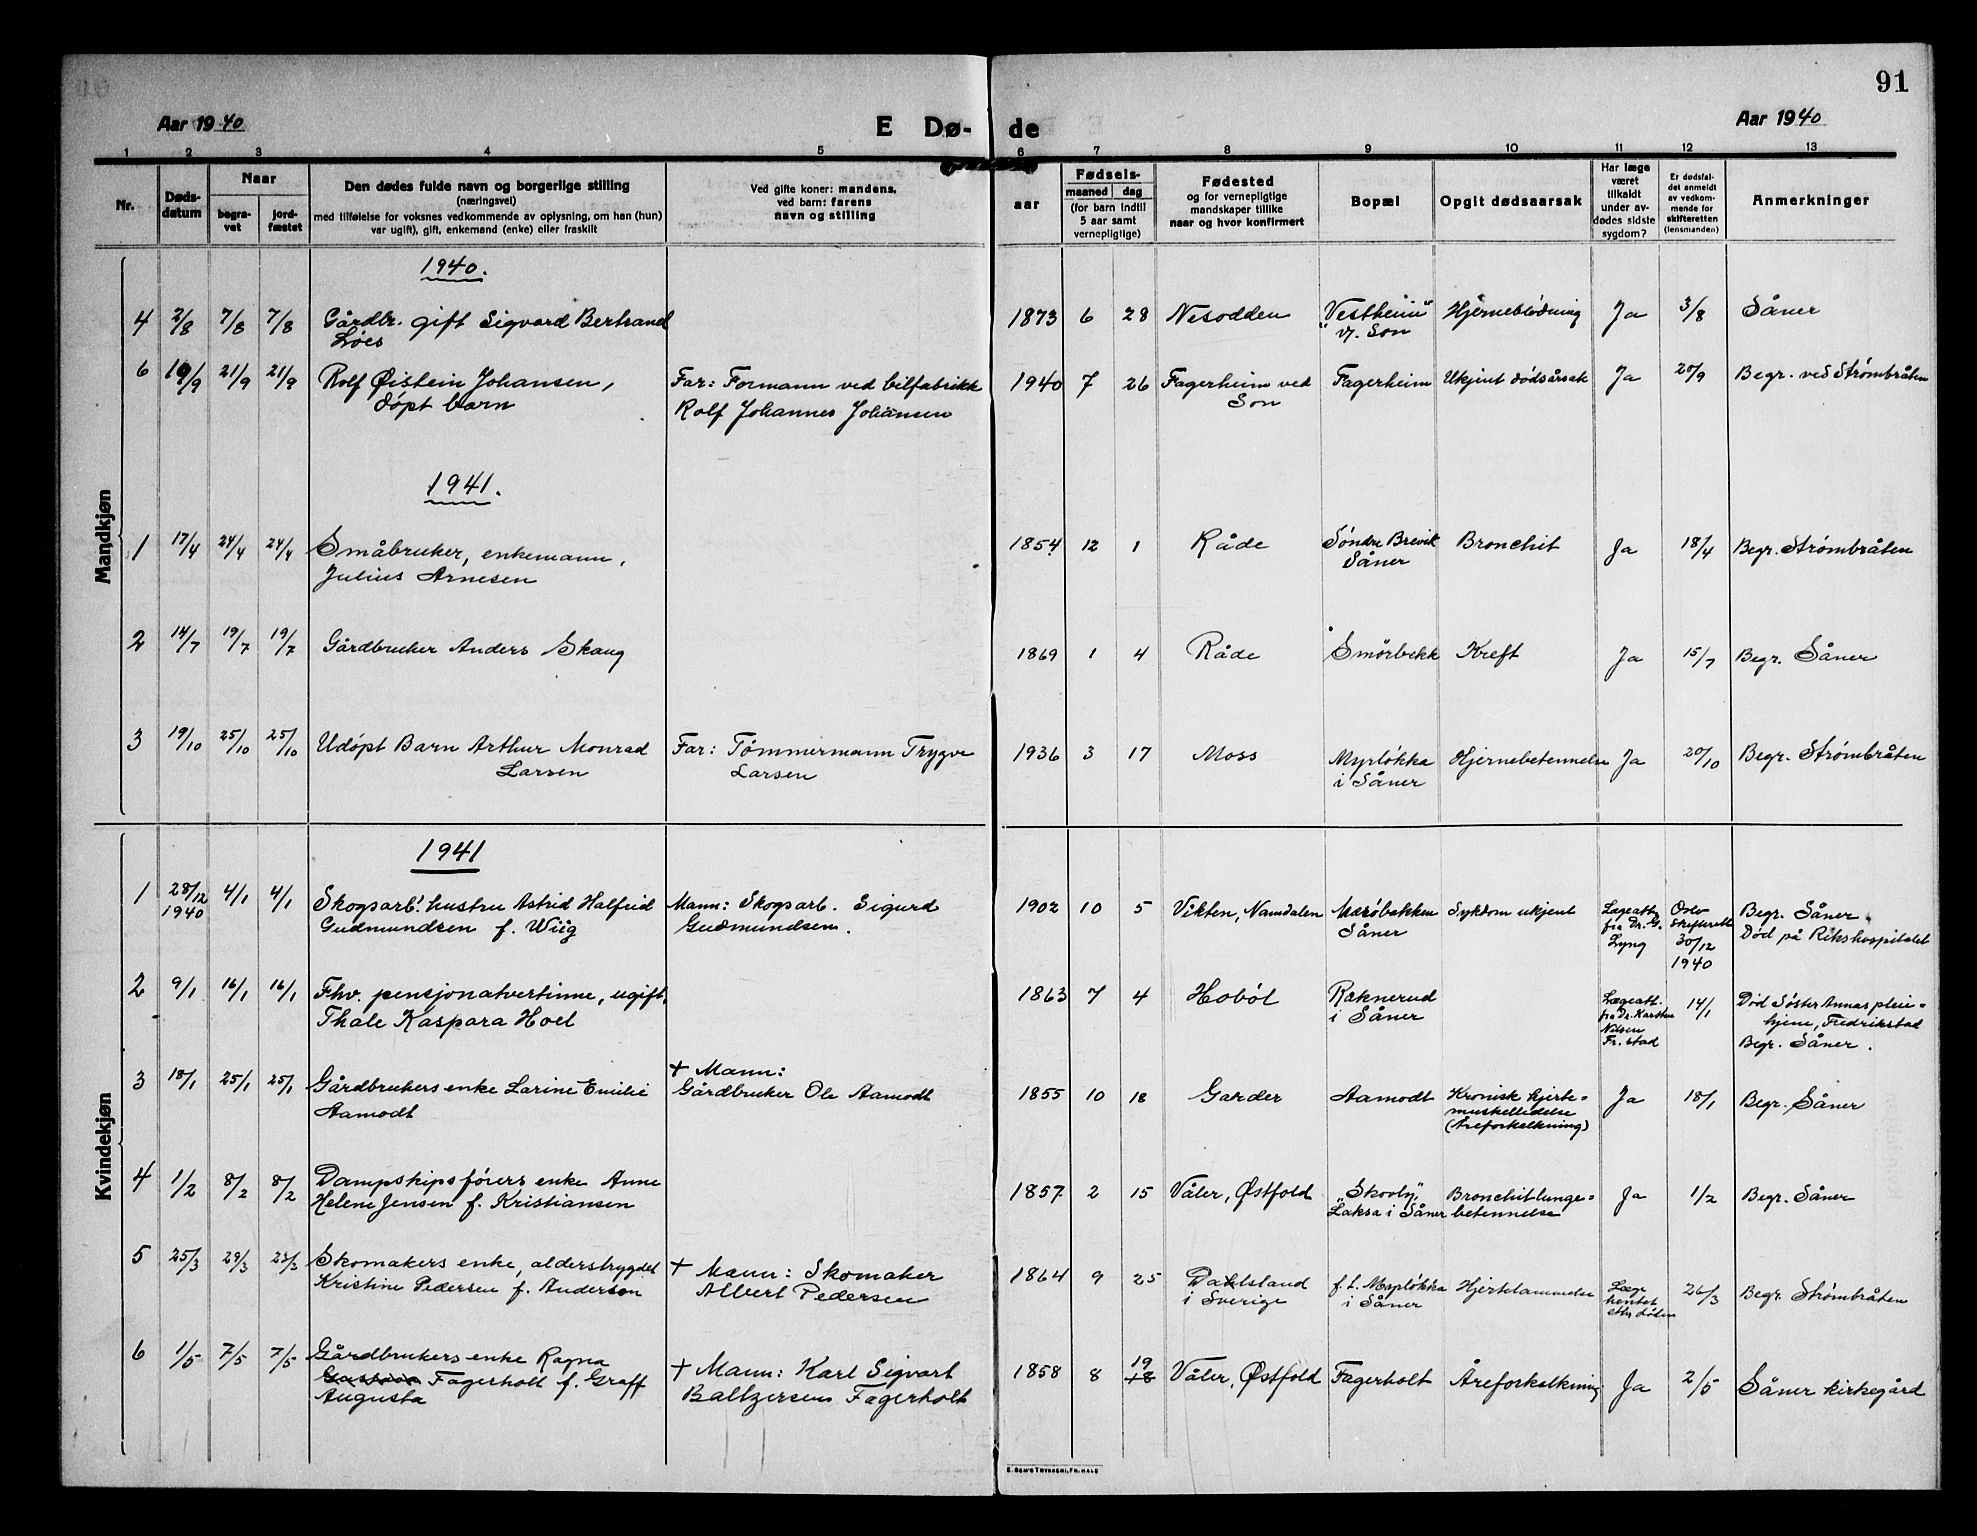 91
Aar 1940
E Dø-de
Aar 1940
1 2 3 4 5 6 7 8 9 10 11 12 13
Nr.
Døds-
datum
Naar
begra-
vet
jord-
fæstet
Den dødes fulde navn og borgerlige stilling
(næringsvei)
med tilføielse for voksnes vedkommende av oplysning, om han (hun)
var ugift), gift, enkemand (enke) eller fraskilt
Ved gifte koner: mandens,
ved barn: farens
navn og stilling
aar
Fødsels-
maaned dag
(for barn indtil
5 aar samt
vernepligtige)
Fødested
og for vernepligtige
mandskaper tillike
naar og hvor konfirmert
Bopæl
Opgit dødsaarsak
Har læge
været
tilkaldt
under av-
dødes sidste
sygdom?
Er dødsfal-
det anmeldt
av vedkom-
mende for
skifteretten
(lensmanden)
Anmerkninger
Mandkjøn
1940.
4 2/8 7/8 7/8 Gårdbr. gift Sigvard Bertrand 1873 6 28 Nesodden "Vestheim" Hjerneblødning Ja 3/8 Såner
Løes v/. Son
6 19/9 21/9 21/9 Rolf Øistein Johansen, Far: Formann ved bilfabrikk 1940 7 26 Fagerheim ved Fagerheim Ukjent dødsårsak Ja 20/9 Begr. ved Strømbråten
døpt barn Rolf Johannes Johansen Son
1941.
1 17/4 24/4 24/4 Småbruker, enkemann, 1854 12 1 Råde Søndre Brevik Bronchit Ja 18/4 Begr. Strømbråten
Julius Arnesen Såner
2 14/7 19/7 19/7 Gårdbruker Anders Skaug 1869 1 4 Råde Smørbekk Kreft Ja 15/7 Begr. Såner
3 19/10 25/10 25/10 Udøpt Barn Arthur Monrad Far: Tømmermann Trygve 1936 3 17 Moss Myrløkka Hjernebetennelse Ja 20/10 Begr. Strømbråten
Larsen Larsen i Såner
Kvindekjøn
1941
1 28/12 4/1 4/1 Skogsarb. hustru Astrid Halfrid Mann: Skogsarb. Sigurd 1902 10 5 Vikten, Namdalen Mørøbekken Sykdom ukjent Lægeatt. Oslo Begr. Såner.
1940 Gudmundsen f. Wiig Gudmundsen. Såner fra Dr. G. Skifterett Død på Rikshospitalet
Lyng 30/12
1940
2 9/1 16/1 16/1 Fhv. pensjonatvertinne, ugift, 1863 7 4 Hobøl Raknerud Lægeatt. 14/1 Død Søster Annas pleie-
Thale Kaspara Hoel i Såner fra Dr. Karsten hjem, Fredrikstad
Nilsen Begr. Såner.
Fr. stad
3 18/1 25/1 25/1 Gårdbrukers enke Larine Emilie + Mann: 1855 10 18 Garder Aamodt Kronisk hjerte- Ja 18/1 Begr. Såner
Aamodt Gårdbruker Ole Aamodt muskellidelse
(Åreforkalkning)
4 1/2 8/2 8/2 Dampskipsførers enke Anne 1857 2 15 Våler, Østfold "Skovly", Bronchit lunge- Ja 1/2 Begr. Såner
Helene Jensen f. Kristiansen Laksa i Såner betennelse
5 25/3 29/3 29/3 Skomakers enke, alderstrygdet + Mann: Skomaker 1864 9 25 Dahlsland f.t. Myrløkka Hjertelammelse Læge 26/3 Begr. Strømbråten
Kristine Pedersen f. Anderson Albert Pedersen i Sverige i Såner hentet
etter døden
6 1/5 7/5 7/5 Gårdbrukers enke Ragna + Mann: Karl Sigvart 1858 8 19 Våler, Østfold Fagerholt Åreforkalkning Ja 2/5 Såner kirkegård
Fagerholt f. Graff Baltzersen Fagerholt 18
Augusta
E. SEM'S TRYKKERI, FR.HALD